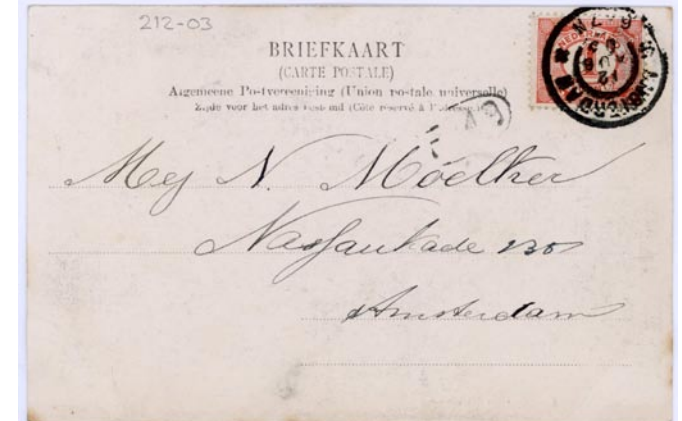 212-03
BRIEFKAART
(CARTE POSTALE)
Algemeene Postvereeniging (Union postale universelle)
Zijde voor het adres bestemd (Côté réservé à l'adresse)
Mej N. Moelker
Nassaukade 130
Amsterdam
NEDERLAND
AMSTERDAM